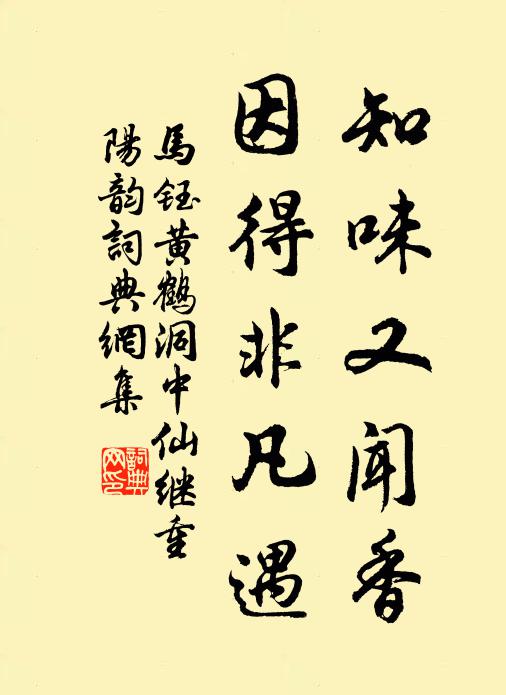 知味又闻香
因得非凡遇
馬鈺黄鶴洞中仙继重
陽韵詞典網集
詞典網印